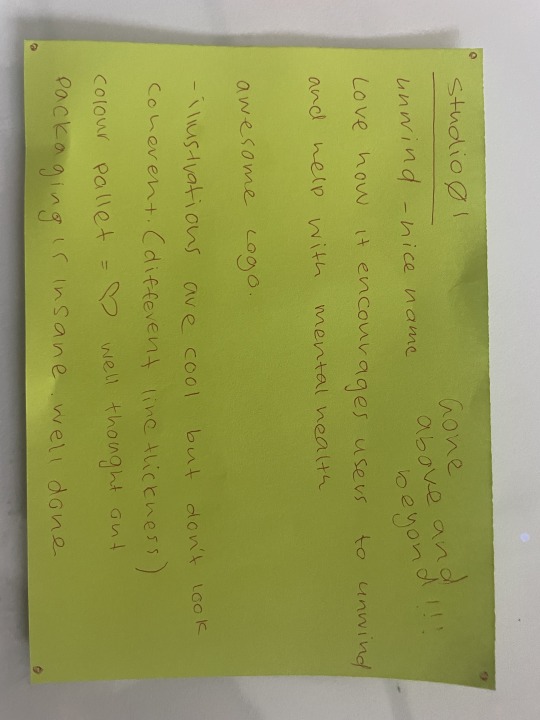 Studio Ø1
unwind - nice name
Gone
above and
beyond!!!
Love how it encourages users to unwind
and help with mental health
awesome logo.
- illustrations are cool but don't look
coherent. (different line thickness)
colour pallet = ♡ well thought out
packaging is insane. well done